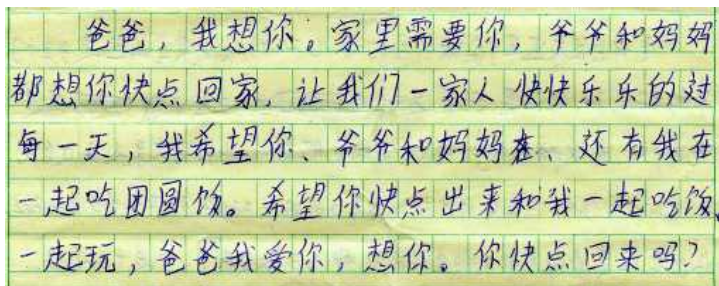 爸爸，我想你。家里需要你，爷爷和妈妈
都想你快点回家，让我们一家人快快乐乐的过
每一天，我希望你、爷爷和妈妈在、还有我在
一起吃团圆饭。希望你快点出来和我一起吃饭，
一起玩，爸爸我爱你，想你。你快点回来吗？